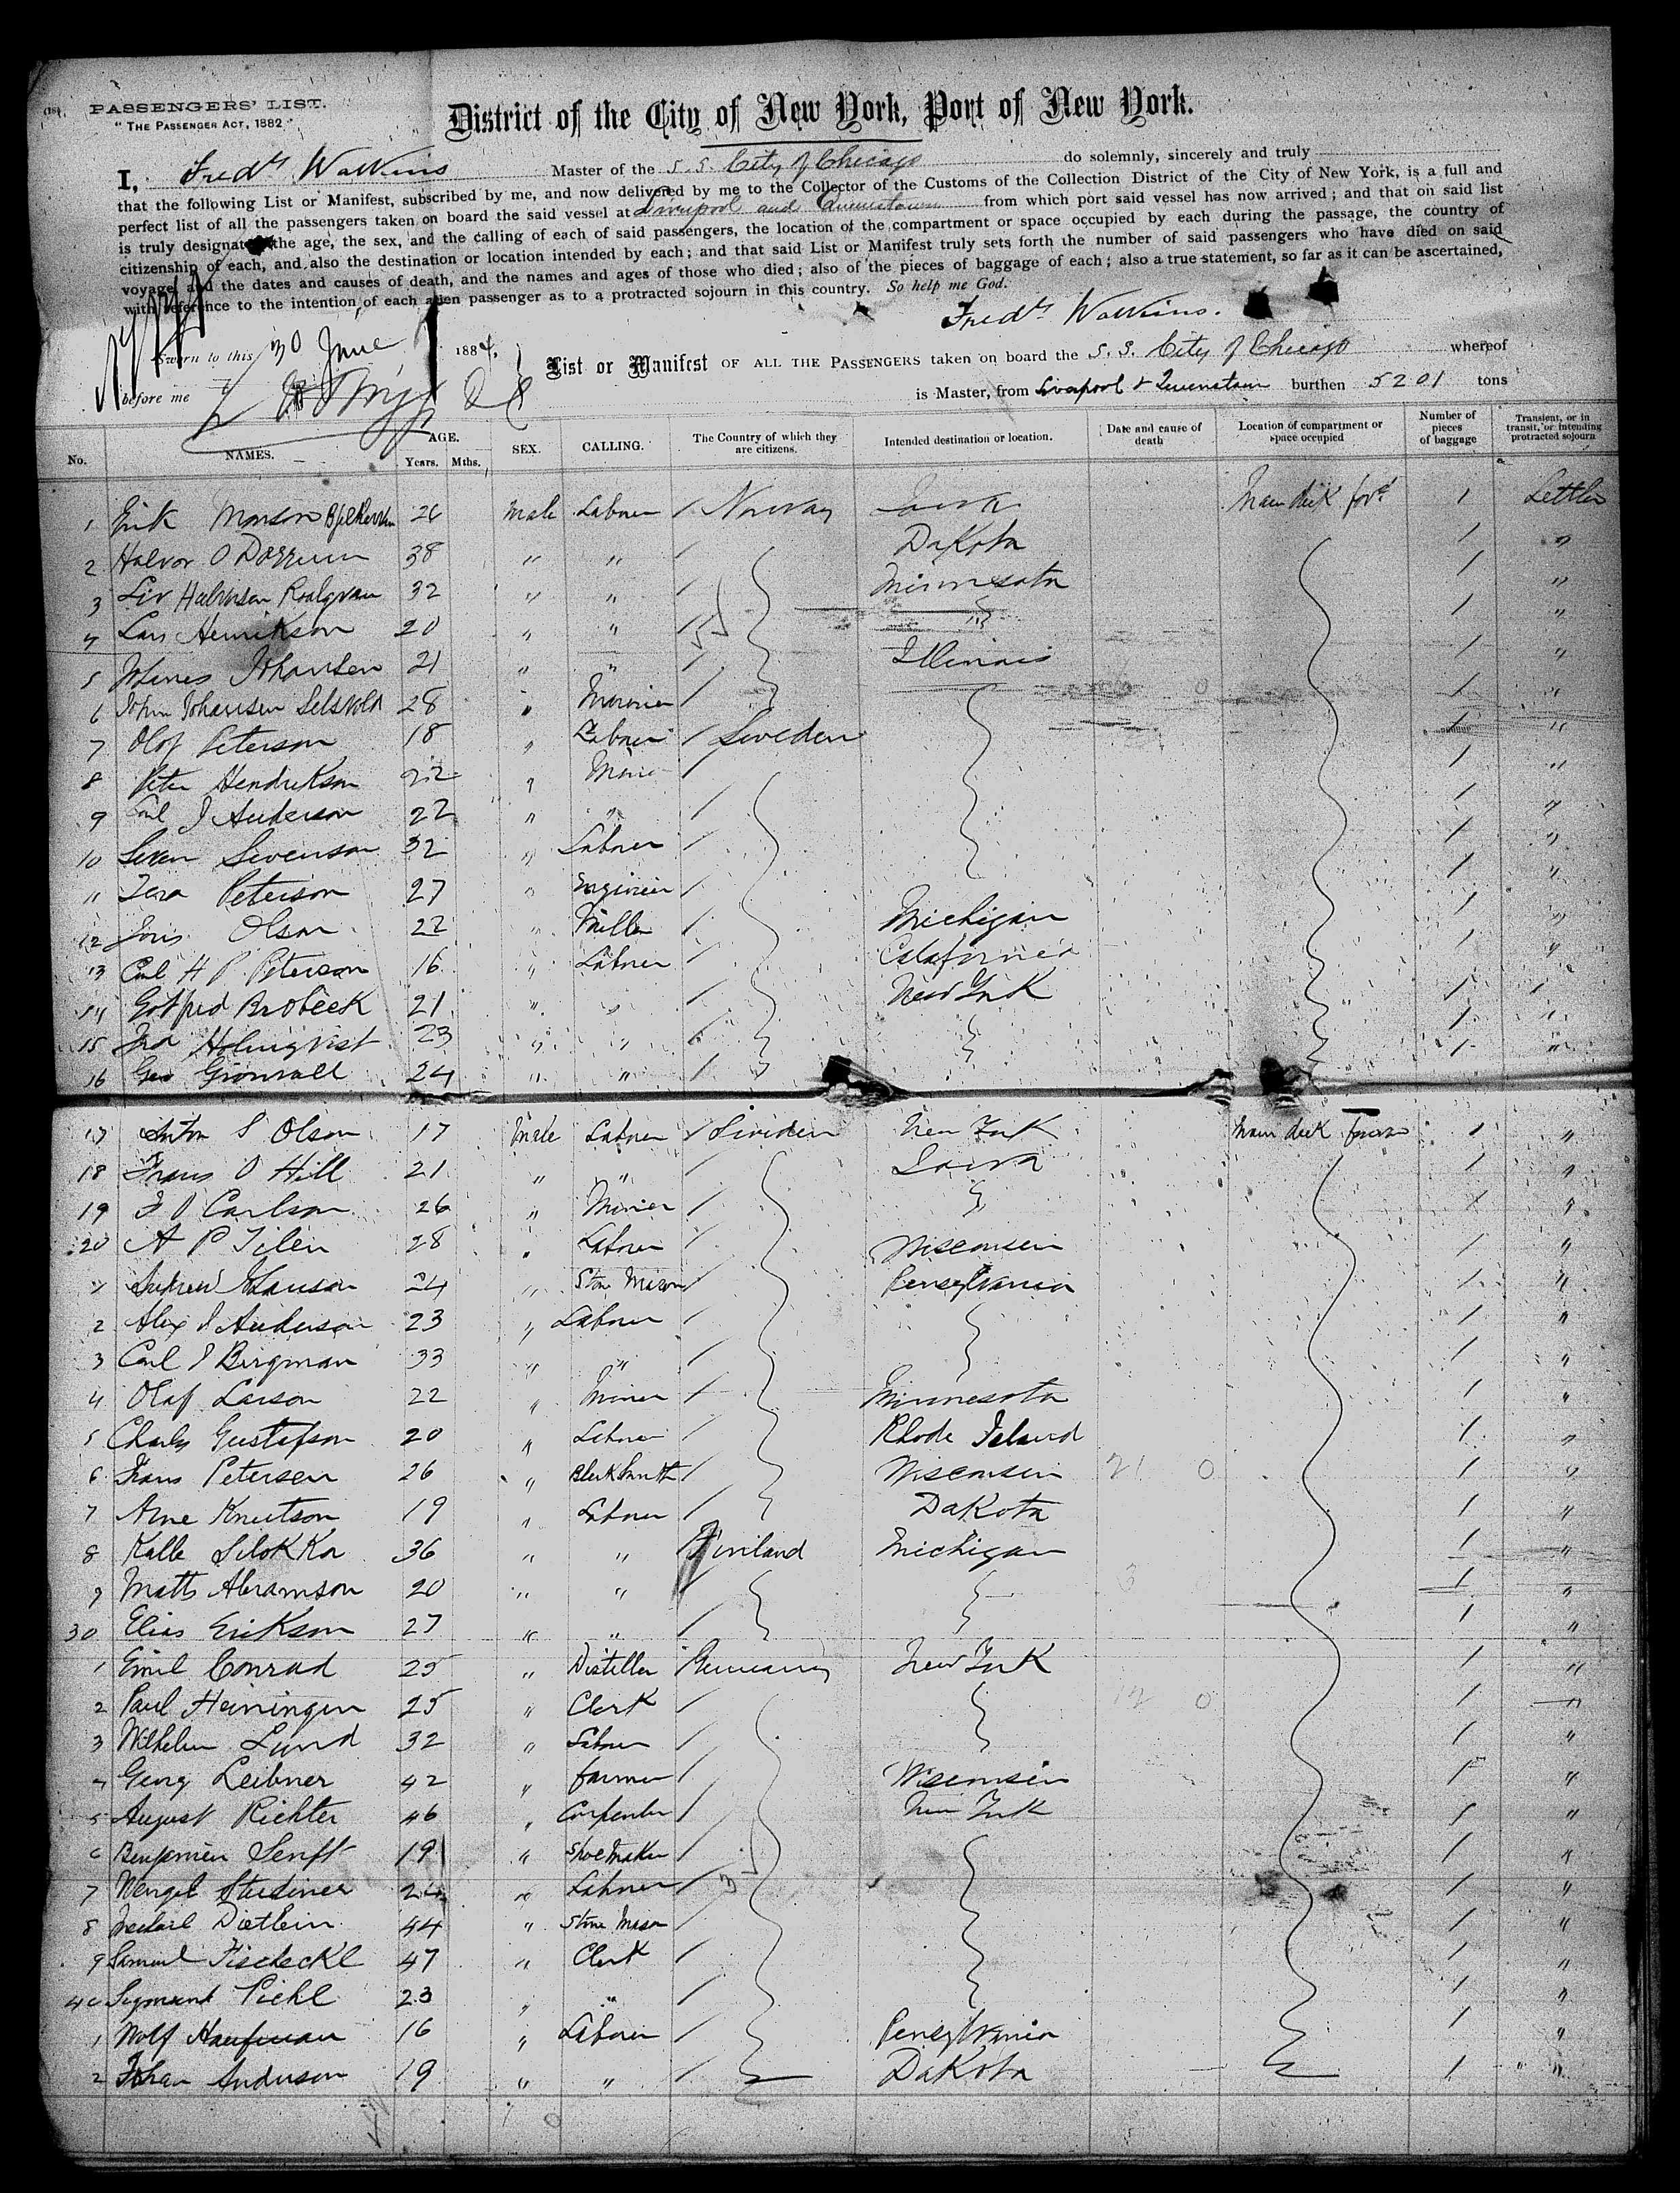 PASSENGERS' LIST.
"THE PASSENGER ACT, 1882"
District of the City of New York, Port of New York.
I, Fredk Watkins Master of the S. S. City of Chicago do solemnly, sincerely and truly
that the following List or Manifest, subscribed by me, and now delivered by me to the Collector of the Customs of the Collection District of the City of New York, is a full and
perfect list of all the passengers taken on board the said vessel at Liverpool and Queenstown from which port said vessel has now arrived; and that on said list
is truly designated the age, the sex, and the calling of each of said passengers, the location of the compartment or space occupied by each during the passage, the country of
citizenship of each, and also the destination or location intended by each; and that said List or Manifest truly sets forth the number of said passengers who have died on said
voyage, and the dates and causes of death, and the names and ages of those who died; also of the pieces of baggage of each; also a true statement, so far as it can be ascertained,
with reference to the intention of each alien passenger as to a protracted sojourn in this country. So help me God.
Fredk Watkins.
Sworn to this 30 June 1884,
before me
List or Manifest OF ALL THE PASSENGERS taken on board the S. S. City of Chicago whereof
is Master, from Liverpool & Queenstown burthen 5201 tons
No. NAMES. AGE. Years. Mths. SEX. CALLING. The Country of which they are citizens. Intended destination or location. Date and cause of death Location of compartment or space occupied Number of pieces of baggage Transient, or in transit, or intending protracted sojourn
1 Erik Monson 26 Male Labourer / Norway Iowa Main deck ford 1 Settler
2 Halvor O 38 " " / Dakota 1 "
3 Liv Halvorsen 32 " " / Minnesota 1 "
4 Lars Henrikson 20 " " / " 1 "
5 Johansen 21 " " / Illinois 1 "
6 John Johansen 28 " / 1 "
7 Olof Peterson 18 " Labourer / Sweden 1 "
8 Peter Hendrikson 22 " / 1 "
9 J Anderson 22 " " / 1 "
10 Swen Swenson 32 " Labourer / 1 "
11 Peterson 27 " Engineer / 1 "
12 Olson 22 " Miller / Michigan 1 "
13 Carl H P Peterson 16 " Labourer / California 1 "
14 Gotfred Brobeck 21 " " / New York 1 "
15 Holmqvist 23 " " / 1 "
16 Geo Gronvall 24 " " / 1 "
17 Anton S Olson 17 Male Labourer / Sweden New York Main deck forward 1 "
18 Frans O Hill 21 " " / Iowa 1 "
19 F O Carlson 26 " Miner / 1 "
20 A P Tilen 28 " Labourer / Wisconsin 1 "
1 Andrew Johanson 24 " Stone Mason / Pensylvania 1 "
2 Alex J Anderson 23 " Labourer / 1 "
3 Carl J Bergman 33 " " / 1 "
4 Olaf Larson 22 " Miner / Minnesota 1 "
5 Charles Gustafson 20 " Labourer / Rhode Island 1 "
6 Frans Petersen 26 " Blacksmith / Wisconsin 1 "
7 Arne Knutson 19 " Labourer / Dakota 1 "
8 Kalle Silokka 36 " " Finland Michigan 1 "
9 Matts Abramson 20 " " / 1 "
30 Elias Erikson 27 " " / 1 "
1 Emil Conrad 25 " Distiller Germany New York 1 "
2 Paul Heiningen 25 " Clerk / 1 "
3 Wilhelm Lund 32 " Labourer / 1 "
4 Georg Leibner 42 " farmer / Wisconsin 1 "
5 August Richter 46 " Carpenter / New York 1 "
6 Benjamin Senft 19 " Shoemaker / 1 "
7 Wenzel Studiner 24 " Labourer / 1 "
8 Michael Dietlein 44 " Stone Mason / 1 "
9 Samuel 47 " Clerk / 1 "
40 Sigmund Piehl 23 " " / 1 "
1 Wolf Kaufman 16 " Labourer / Pensylvania 1 "
2 Johan Anderson 19 " " / Dakota 1 "